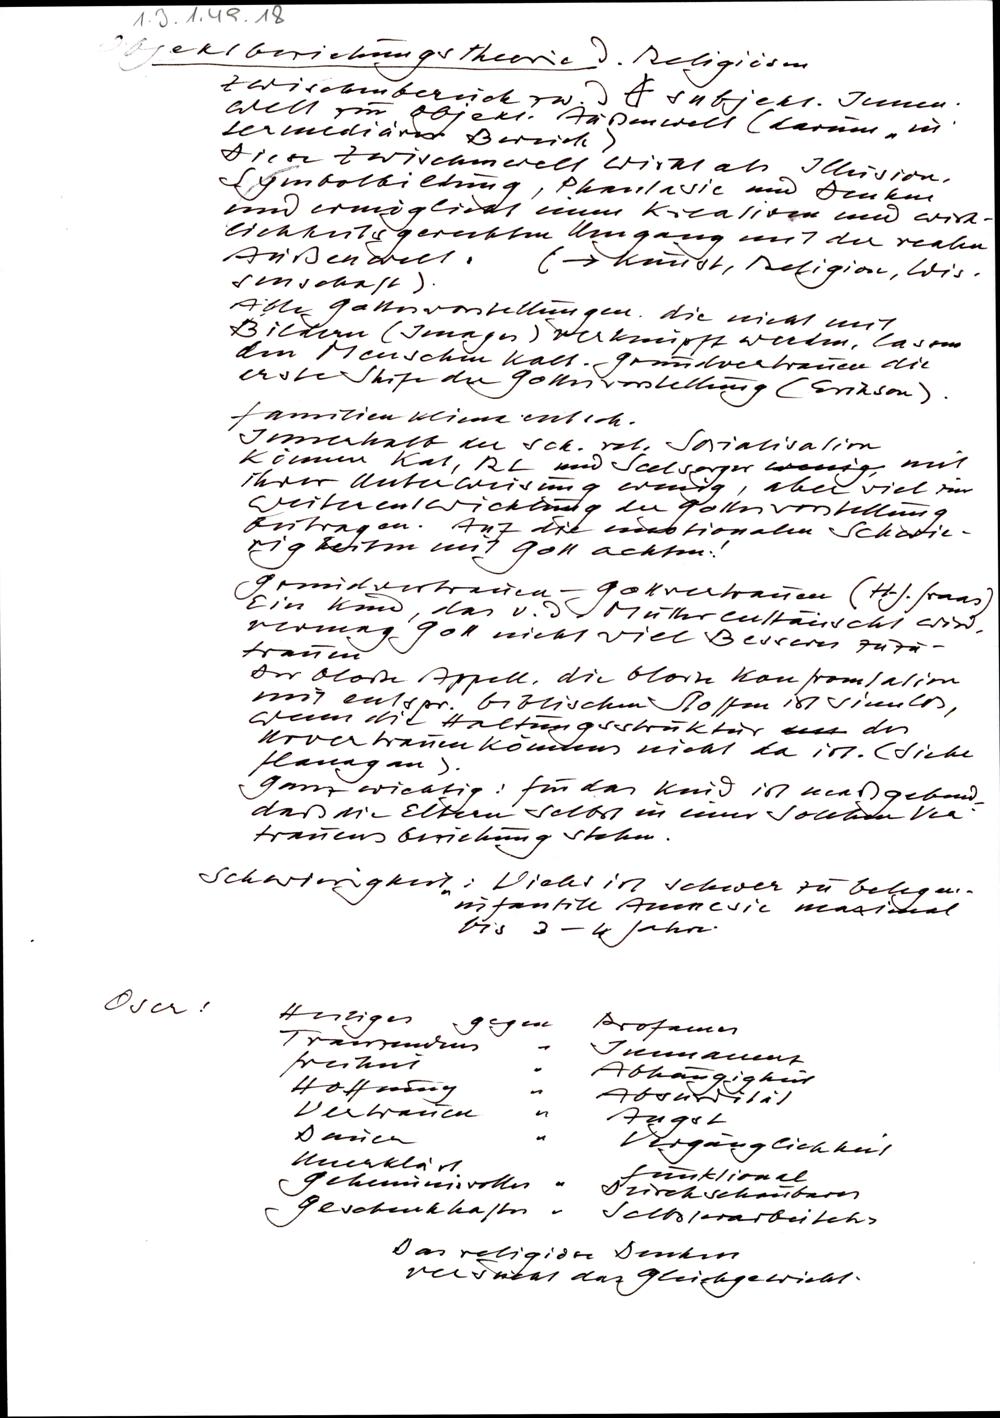 1.3.1.49.18
Objektbeziehungstheorie d. Religiösen
Zwischenbereich zw. d subjekt. Innen-
welt zur objekt. Außenwelt (darum „in
termediärer Bereich)
Diese Zwischenwelt wirkt als Illusion,
Symbolbildung, Phantasie und Denken
und ermöglicht einen kreativen und wirk-
lichkeitsgerechten Umgang mit der realen
Außenwelt. (→ Kunst, Religion, Wis-
senschaft).
Alle Gottesvorstellungen, die nicht mit
Bildern (Images) verknüpft werden, lassen
den Menschen kalt. Grundvertrauen die
erste Stufe der Gottesvorstellung (Erikson).
Familienklima entsch.
Innerhalb der sch. rel. Sozialisation
können Kat, RL und Seelsorger wenig mit
ihrer Unterweisung wenig, aber viel zur
Weiterentwicklung der Gottesvorstellung
beitragen. Auf die emotionalen Schwie-
rigkeiten mit Gott achten!
Grundvertrauen - Gottvertrauen (H-J. Fraas)
Ein Kind, das v. d. Mutter enttäuscht wird,
vermag Gott nicht viel Besseres zuzu-
trauen
Der bloße Appell, die bloße Konfrontation
mit entspr. biblischen Stoffen ist sinnlos,
wenn die Haltungsstruktur des
Urvertrauenkönnens nicht da ist. (Siehe
Flanagan).
Ganz wichtig: für das Kind ist maßgebend,
daß die Eltern selbst in einer solchen Ver
trauensbeziehung stehen.
Schwierigkeit: Vieles ist schwer zu belegen.
„infantile Amnesie maximal
bis 3 - 4 Jahre.
Oser:
Heiliges gegen Profanes
Transzendenz " Immanent
Freiheit " Abhängigkeit
Hoffnung " Absurdität
Vertrauen " Angst
Dauer " Vergänglichkeit
Unerklärt funktional
Geheimnisvolles " Durchschaubares
Geschenkhaftes " Selbsterarbeitetes
Das religiöse Denken
versucht das Gleichgewicht.